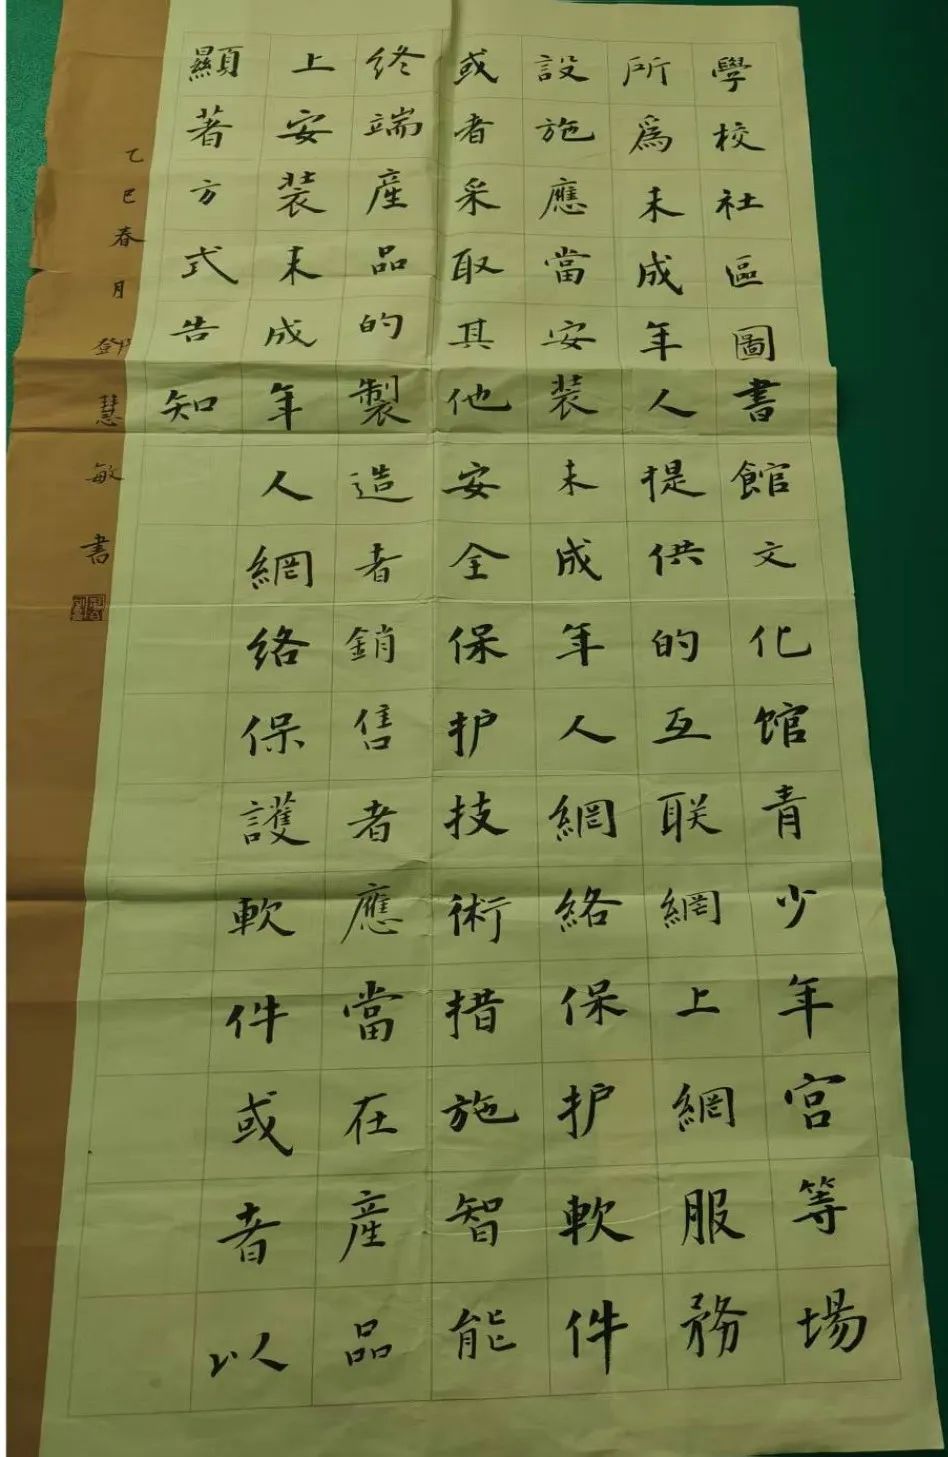 學校社區圖書館文化馆青少年宫等場
所爲未成年人提供的互联網上網服務
設施應當安装未成年人網絡保护軟件
或者采取其他安全保护技術措施智能
终端産品的製造者銷售者應當在産品
上安装未成年人網络保護軟件或者以
顯著方式告知
乙巳春月 慧敏書